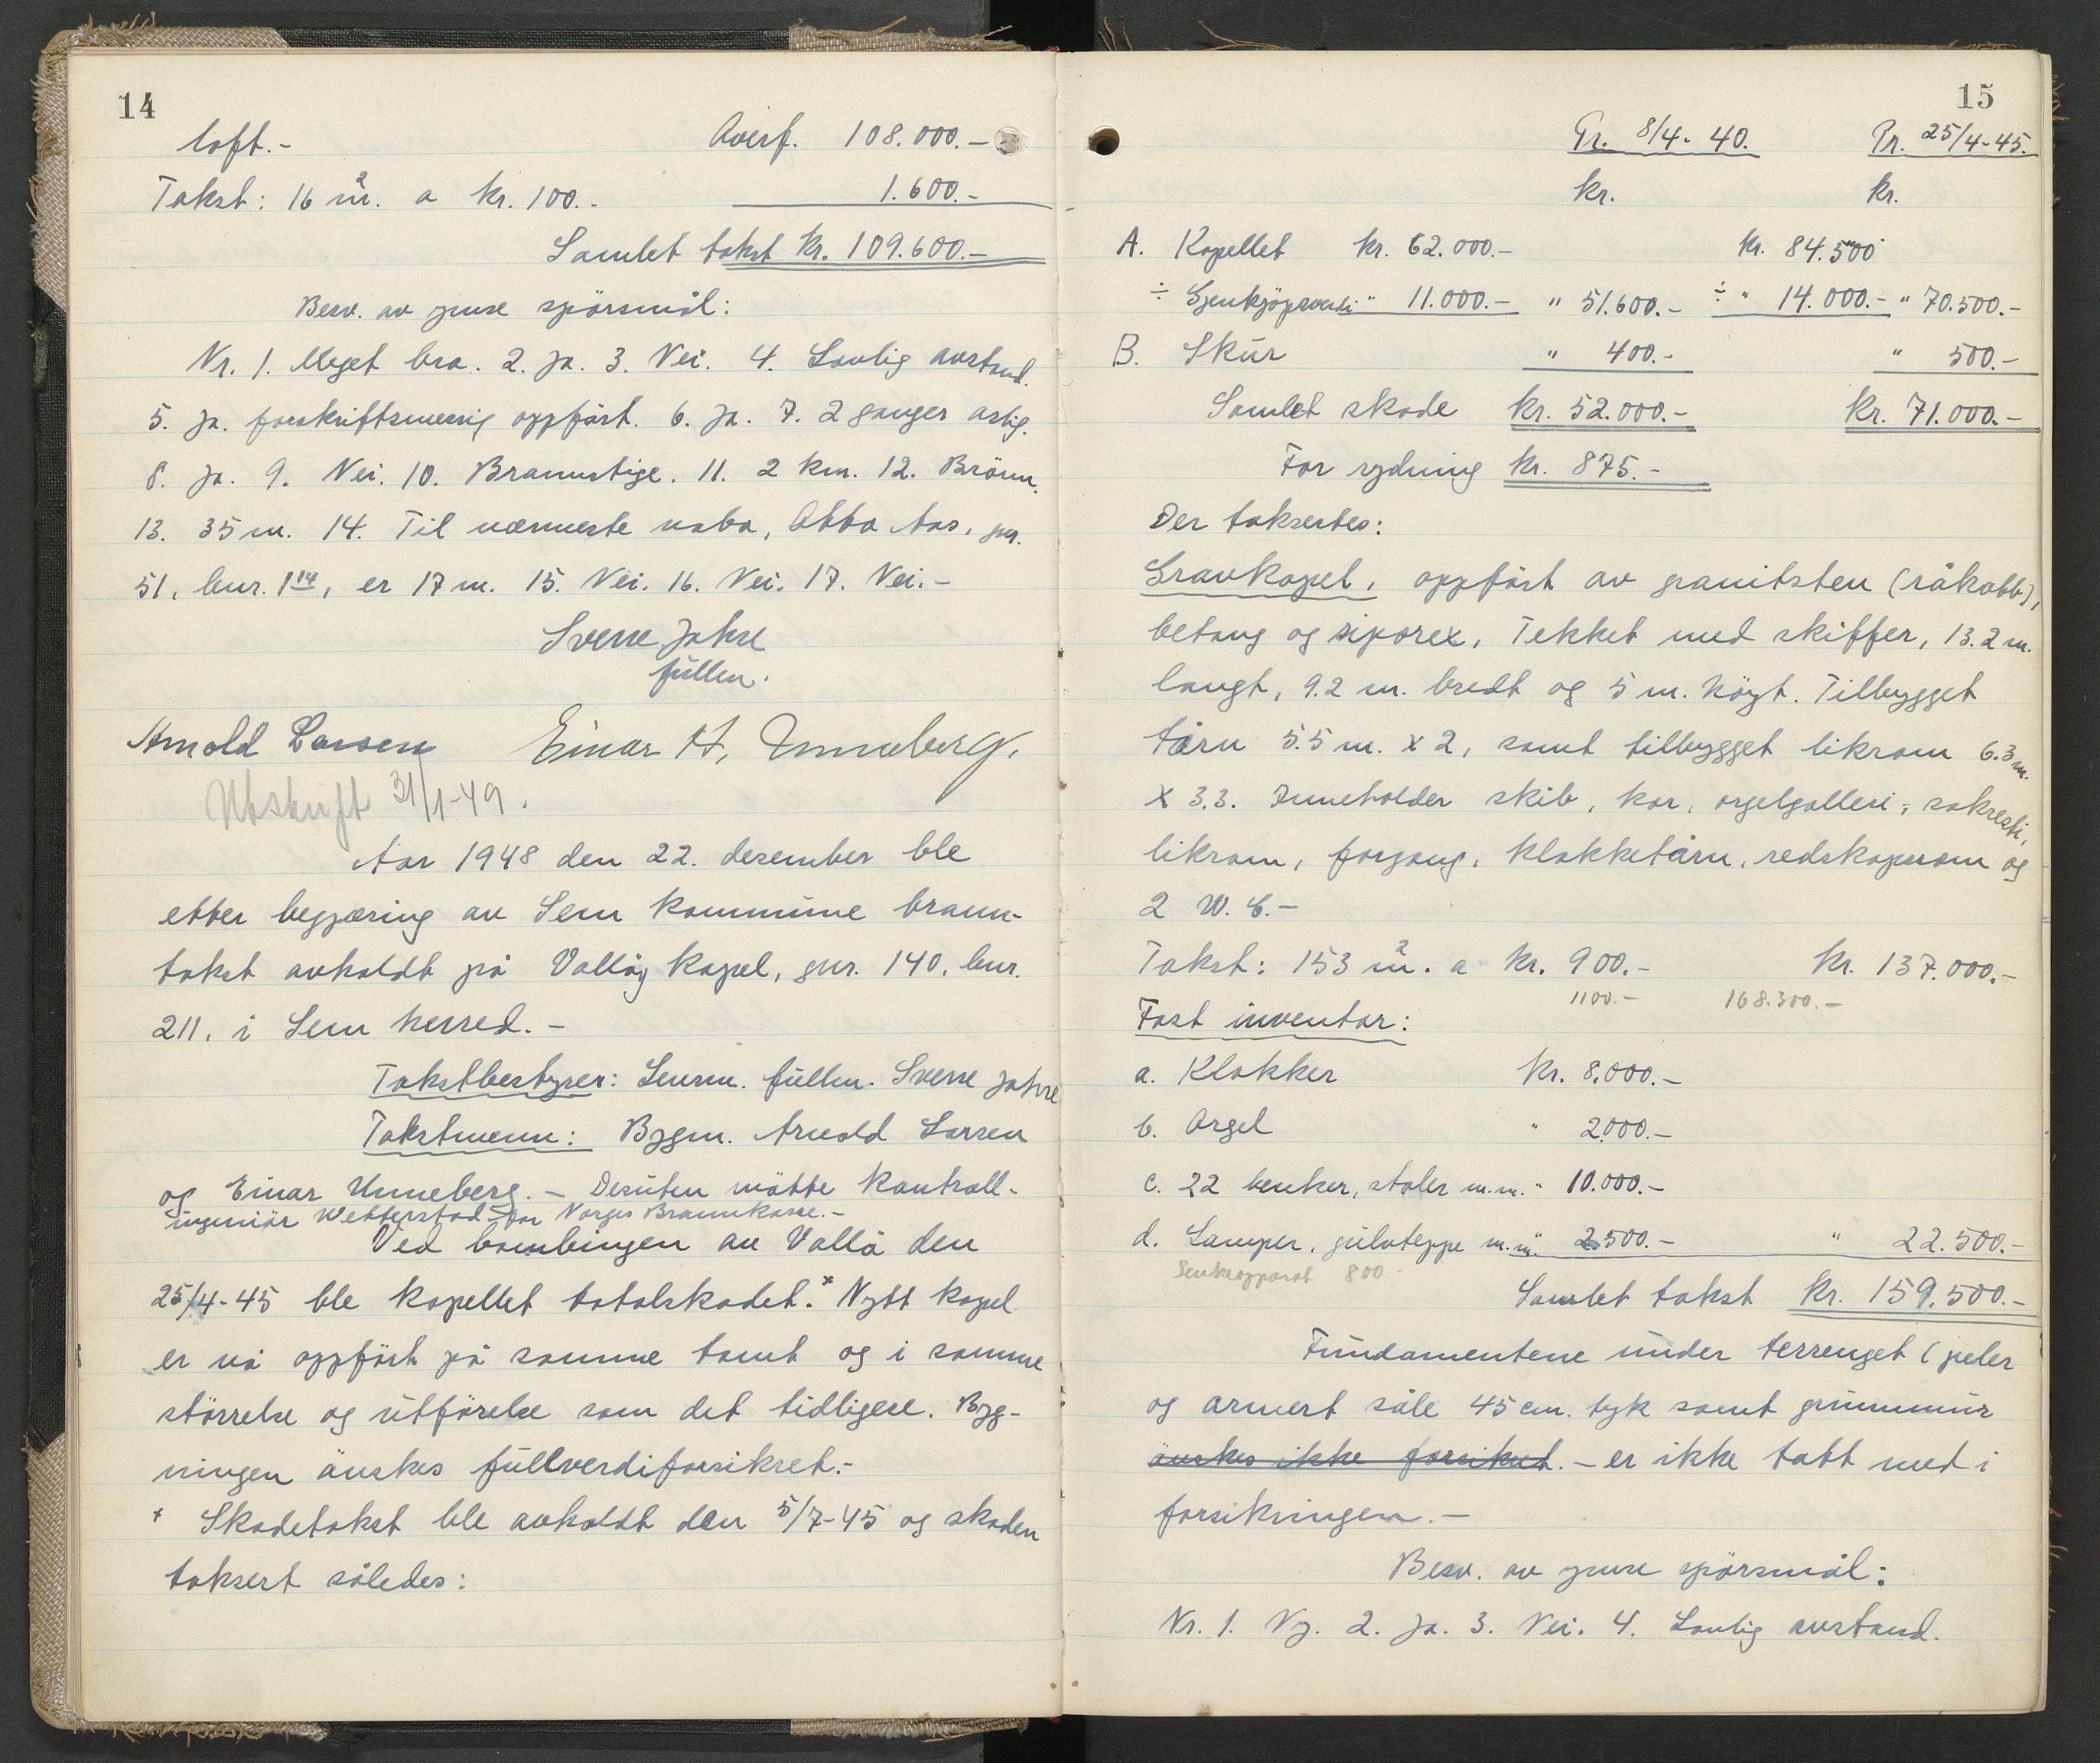 14
loft.- Overf. 108.000.-
Takst: 16 m². a kr. 100.- 1.600.-
Samlet takst kr. 109.600.-
Besv. av gense spörsmål:
Nr. 1. Meget bra. 2. Ja. 3. Nei. 4. Lovlig avstand.
5. Ja. forskriftsmessig oppfört. 6. Ja. 7. 2 ganger aarlig.
8. Ja. 9. Nei. 10. Brannstige. 11. 2 km. 12. Brönn.
13. 35 m. 14. Til nærmeste nabo, Otto Aas, gnr.
51, bnr. 1¹⁴, er 17 m. 15. Nei. 16. Nei. 17. Nei.-
Sverre Jahre
fullm.
Arnold Larsen Einar H. Unneberg.
Utskrift 31/1-49.
Aar 1948 den 22. desember ble
etter begjæring av Sem kommune brann-
takst avholdt på Vallöy kapel, gnr. 140, bnr.
211, i Sem herred.-
Takstbestyrer: Lensm. fullm. Sverre Jahre
Takstmenn: Bygm. Arnold Larsen
og Einar Unneberg.- Desuten mötte kontroll-
ingeniör Wetterstad for Norges Brannkasse.-
Ved bombingen av Vallö den
25/4-45 ble kapellet totalskadet.* Nytt kapel
er nå oppfört på samme tomt og i samme
störrelse og utförelse som det tidligere. Byg-
ningen önskes fullverdiforsikret.-
* Skadetakst ble avholdt den 5/7-45 og skaden
taksert således:
15
Pr. 8/4-40. Pr. 25/4-45.
kr. kr.
A. Kapellet kr. 62.000.- kr. 84.500
÷ Gjenkjöpsverdi " 11.000.- " 51.600.- ÷ " 14.000.- " 70.500.-
B. Skur " 400.- " 500.-
Samlet skade kr. 52.000.- kr. 71.000.-
For rydning kr. 875.-
Der taksertes:
Gravkapel, oppfört av granitsten (råkobb),
betong og siporex, Tekket med skiffer, 13.2 m.
langt, 9.2 m. bredt og 5 m. höyt. Tilbygget
tårn 5.5 m. x 2, samt tilbygget likrom 6.3 m.
x 3.3. Inneholder skib, kor, orgelgalleri, sakresti,
likrom, forgang, klokketårn, redskapsrom og
2 W.C.-
Takst: 153 m². a kr. 900.- kr. 137.000.-
1100.- 168.300.-
Fast inventar:
a. Klokker kr. 8.000.-
b. Orgel " 2000.-
c. 22 benker, stoler m.m. " 10.000.-
d. Lamper, gulvteppe m.m. " 2.500.- " 22.500.-
Senkeapparat 800.-
Samlet takst kr. 159.500.-
Fundamentene under terrenget (peler
og armert såle 45 cm. tyk samt grunnmur
önskes ikke forsikret.- er ikke tatt med i
forsikringen.-
Besv. av gense spörsmål:
Nr. 1. Ny. 2. Ja. 3. Nei. 4. Lovlig avstand.